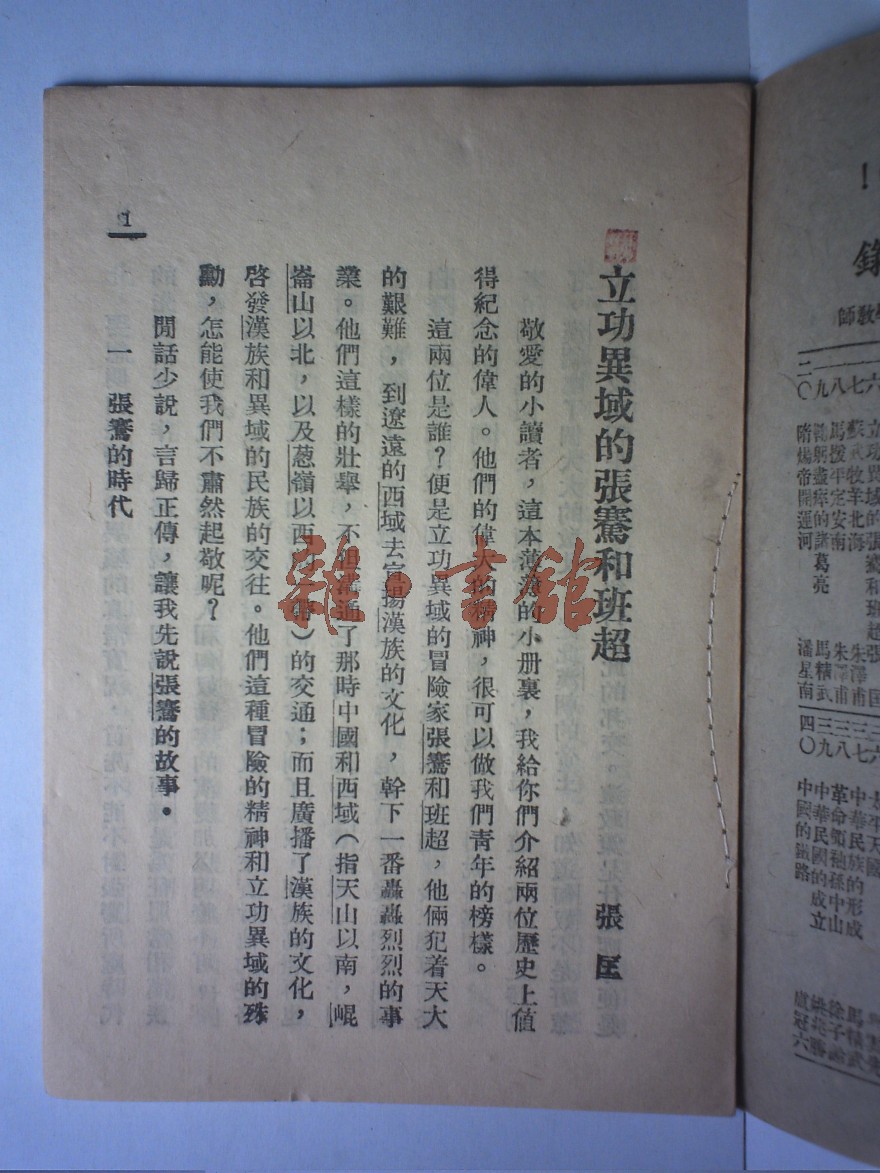 錄
教師
六
七
八
九
二〇
立功異域的張騫和班超 張匡
蘇武牧羊北海 朱澤甫
馬援平定安南 朱澤甫
鞠躬盡瘁的諸葛亮 馬精武
隋煬帝開運河 潘星南
六
七
八
九
四〇
太平天國
中華民族的形成 馬精武
革命領袖孫中山 徐子
中華民國的成立 姚
中國的鐵路 盧冠六
立功異域的張騫和班超
張匡
敬愛的小讀者，這本薄薄的小册裏，我給你們介紹兩位歷史上值
得紀念的偉人。他們的偉大的精神，很可以做我們青年的榜樣。
這兩位是誰？便是立功異域的冒險家張騫和班超，他倆犯着天大
的艱難，到遼遠的西域去宣揚漢族的文化，幹下一番轟轟烈烈的事
業。他們這樣的壯舉，不祖溝通了那時中國和西域（指天山以南，崐
崙山以北，以及葱嶺以西的一帶）的交通；而且廣播了漢族的文化，
啓發漢族和異域的民族的交往。他們這種冒險的精神和立功異域的殊
勳，怎能使我們不肅然起敬呢？
閒話少說，言歸正傳，讓我先說張騫的故事。
一 張騫的時代
1
雜·書館